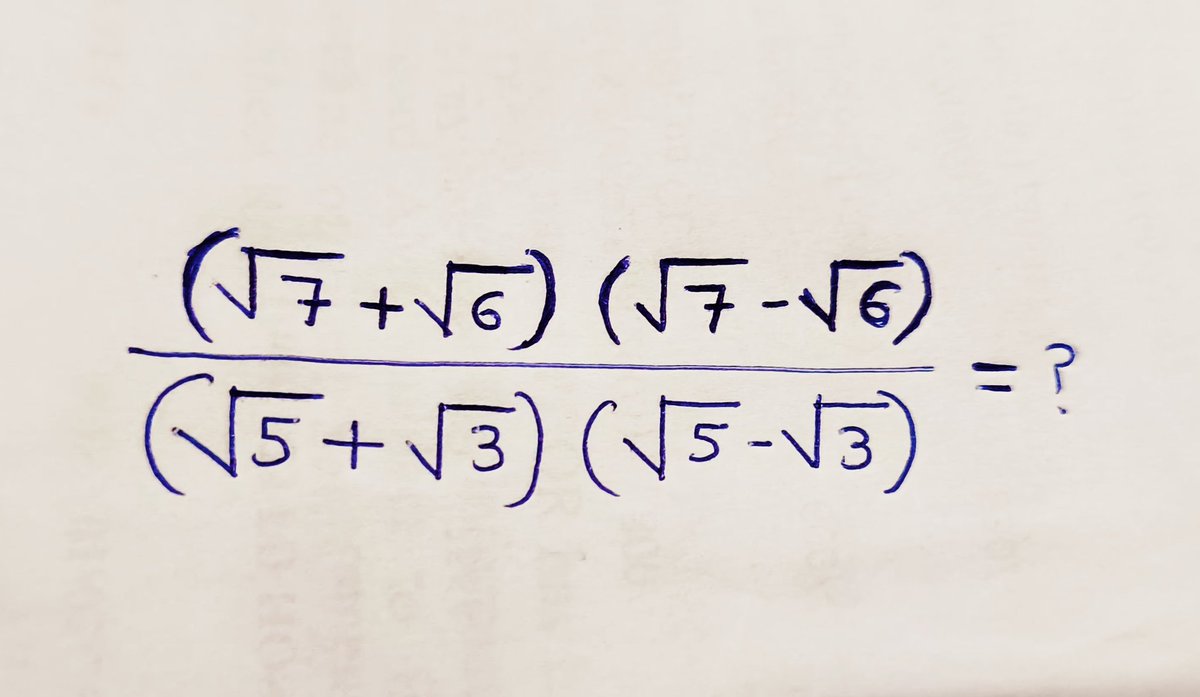 (√7 + √6) (√7 - √6)
(√5 + √3) (√5 - √3)
= ?